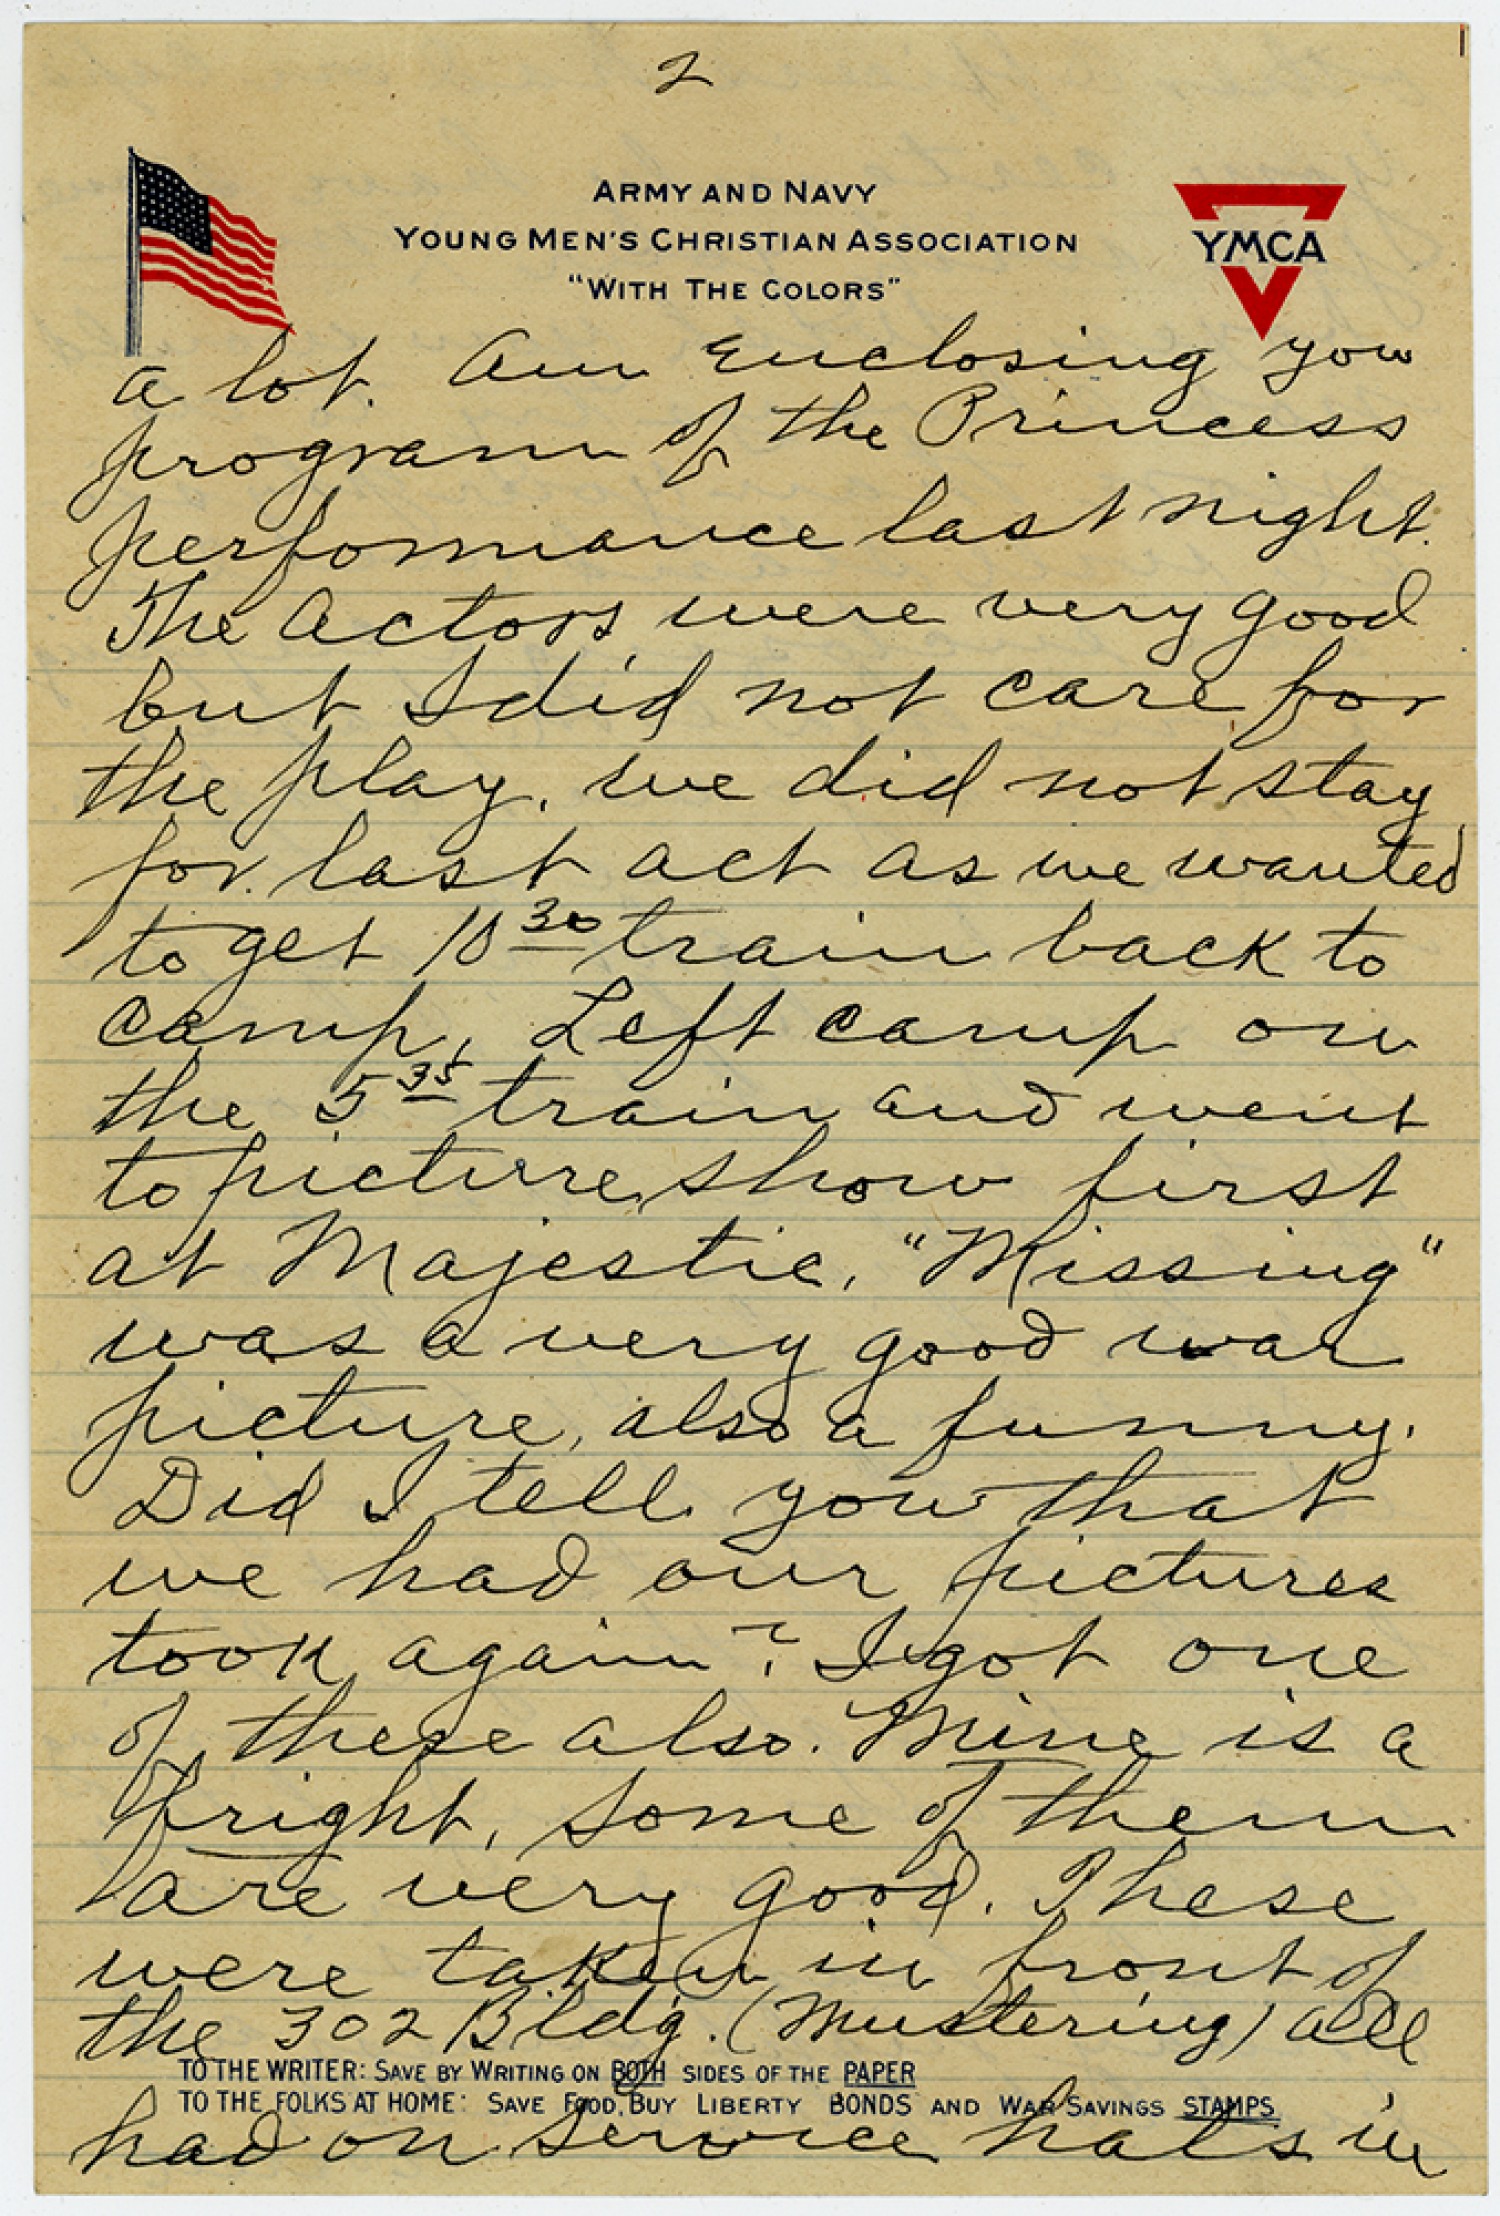 2
ARMY AND NAVY
YOUNG MEN'S CHRISTIAN ASSOCIATION
"WITH THE COLORS"
YMCA
a lot. Am Enclosing you
program of the Princess
performance last night.
The Actors were very good
but I did not care for
the play. We did not stay
for last act as we wanted
to get 10 30 train back to
camp. Left camp on
the 5 35 train and went
to picture show first
at Majestic. "Missing"
was a very good war
picture, also a funny.
Did I tell you that
we had our pictures
took again? I got one
of these also. Mine is a
fright, some of them
are very good. These
were taken in front of
the 302 Bldg. (Mustering) all
TO THE WRITER: SAVE BY WRITING ON BOTH SIDES OF THE PAPER
TO THE FOLKS AT HOME: SAVE FOOD, BUY LIBERTY BONDS AND WAR SAVINGS STAMPS
had on service hats in